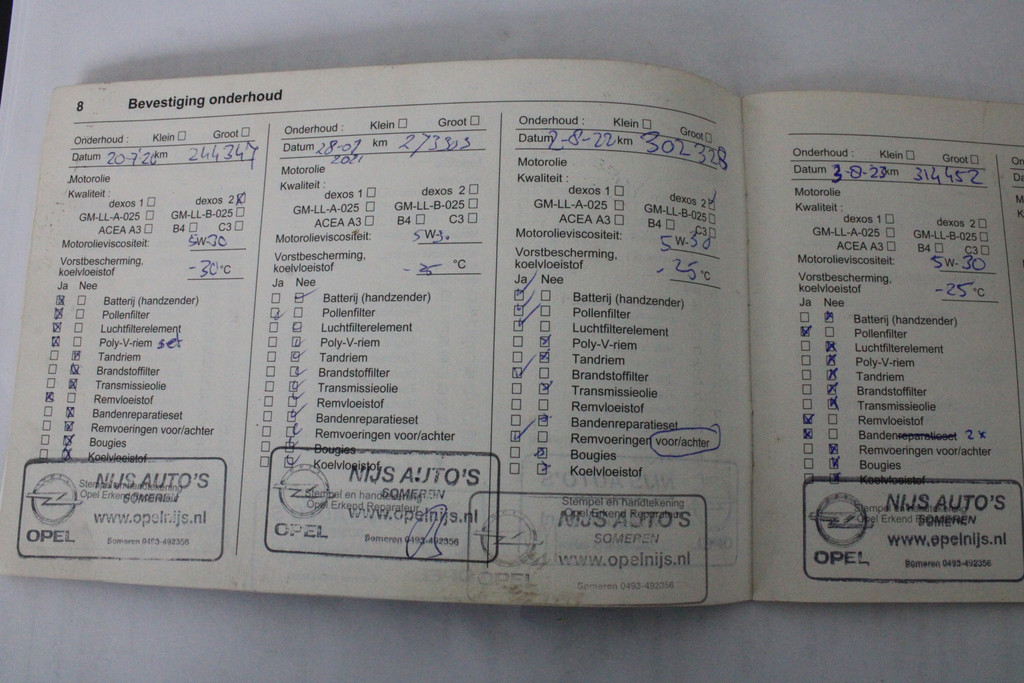 8 Bevestiging onderhoud
Onderhoud : Klein Groot
Datum 20-7-20 km 244347
Motorolie
Kwaliteit :
dexos 1 dexos 2
GM-LL-A-025 GM-LL-B-025
ACEA A3 B4 C3
Motorolieviscositeit: 5W-30
Vorstbescherming,
koelvloeistof -30 °C
Ja Nee
Batterij (handzender)
Pollenfilter
Luchtfilterelement
Poly-V-riem set
Tandriem
Brandstoffilter
Transmissieolie
Remvloeistof
Bandenreparatieset
Remvoeringen voor/achter
Bougies
Koelvloeistof
Stempel en handtekening
Opel Erkend Reparateur
NIJS AUTO'S
SOMEREN
www.opelnijs.nl
OPEL
Someren 0493-492356
Onderhoud : Klein Groot
Datum 28-07 2021 km
Motorolie
Kwaliteit :
dexos 1 dexos 2
GM-LL-A-025 GM-LL-B-025
ACEA A3 B4 C3
Motorolieviscositeit: 5W-30
Vorstbescherming,
koelvloeistof -25 °C
Ja Nee
Batterij (handzender)
Pollenfilter
Luchtfilterelement
Poly-V-riem
Tandriem
Brandstoffilter
Transmissieolie
Remvloeistof
Bandenreparatieset
Remvoeringen voor/achter
Bougies
Koelvloeistof
Stempel en handtekening
Opel Erkend Reparateur
NIJS AUTO'S
SOMEREN
www.opelnijs.nl
OPEL
Someren 0493-492356
Onderhoud : Klein Groot
Datum 2-8-22 km 302328
Motorolie
Kwaliteit :
dexos 1 dexos 2
GM-LL-A-025 GM-LL-B-025
ACEA A3 B4 C3
Motorolieviscositeit: 5W-30
Vorstbescherming,
koelvloeistof -25 °C
Ja Nee
Batterij (handzender)
Pollenfilter
Luchtfilterelement
Poly-V-riem
Tandriem
Brandstoffilter
Transmissieolie
Remvloeistof
Bandenreparatieset
Remvoeringen voor/achter
Bougies
Koelvloeistof
Stempel en handtekening
Opel Erkend Reparateur
NIJS AUTO'S
SOMEREN
www.opelnijs.nl
OPEL
Someren 0493-492356
Onderhoud : Klein Groot
Datum 3-8-23 km 314452
Motorolie
Kwaliteit :
dexos 1 dexos 2
GM-LL-A-025 GM-LL-B-025
ACEA A3 B4 C3
Motorolieviscositeit: 5W-30
Vorstbescherming,
koelvloeistof -25 °C
Ja Nee
Batterij (handzender)
Pollenfilter
Luchtfilterelement
Poly-V-riem
Tandriem
Brandstoffilter
Transmissieolie
Remvloeistof
Bandenreparatieset 2x
Remvoeringen voor/achter
Bougies
Koelvloeistof
Stempel en handtekening
Opel Erkend
NIJS AUTO'S
SOMEREN
www.opelnijs.nl
OPEL
Someren 0493-492356